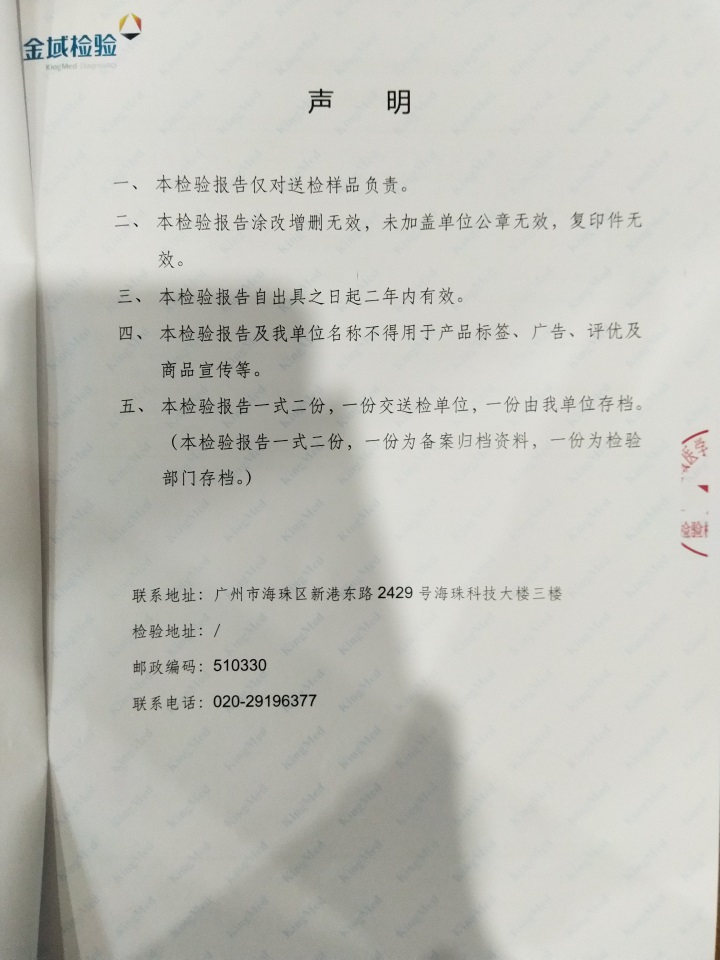 金域检验
KingMed Diagnostics
声 明
一、本检验报告仅对送检样品负责。
二、本检验报告涂改增删无效，未加盖单位公章无效，复印件无
效。
三、本检验报告自出具之日起二年内有效。
四、本检验报告及我单位名称不得用于产品标签、广告、评优及
商品宣传等。
五、本检验报告一式二份，一份交送检单位，一份由我单位存档。
（本检验报告一式二份，一份为备案归档资料，一份为检验
部门存档。）
医学
检验检
联系地址：广州市海珠区新港东路 2429 号海珠科技大楼三楼
检验地址：/
邮政编码：510330
联系电话：020-29196377